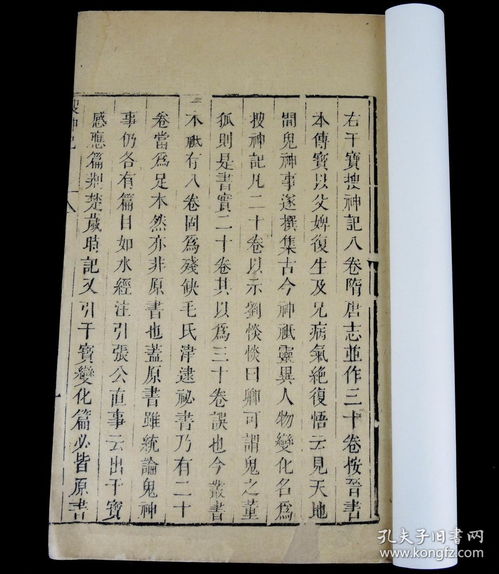 右干寶搜神記八卷隋唐志並作三十卷按晉書
本傳寶以父婢復生及兄病氣絶復悟云見天地
間鬼神事遂撰集古今神祇靈異人物變化名爲
搜神記凡二十卷以示劉惔惔曰卿可謂鬼之董
狐則是書實二十卷其以爲三十卷誤也今叢書
本祇有八卷固爲殘缺毛氏津逮祕書乃有二十
卷當爲足本然亦非原書也蓋原書雖統論鬼神
事仍各有篇目如水經注引張公直事云出干寶
感應篇荆楚歲時記又引干寶變化篇必皆原書
搜神記
八
孔夫子旧书网
www.kongfz.com